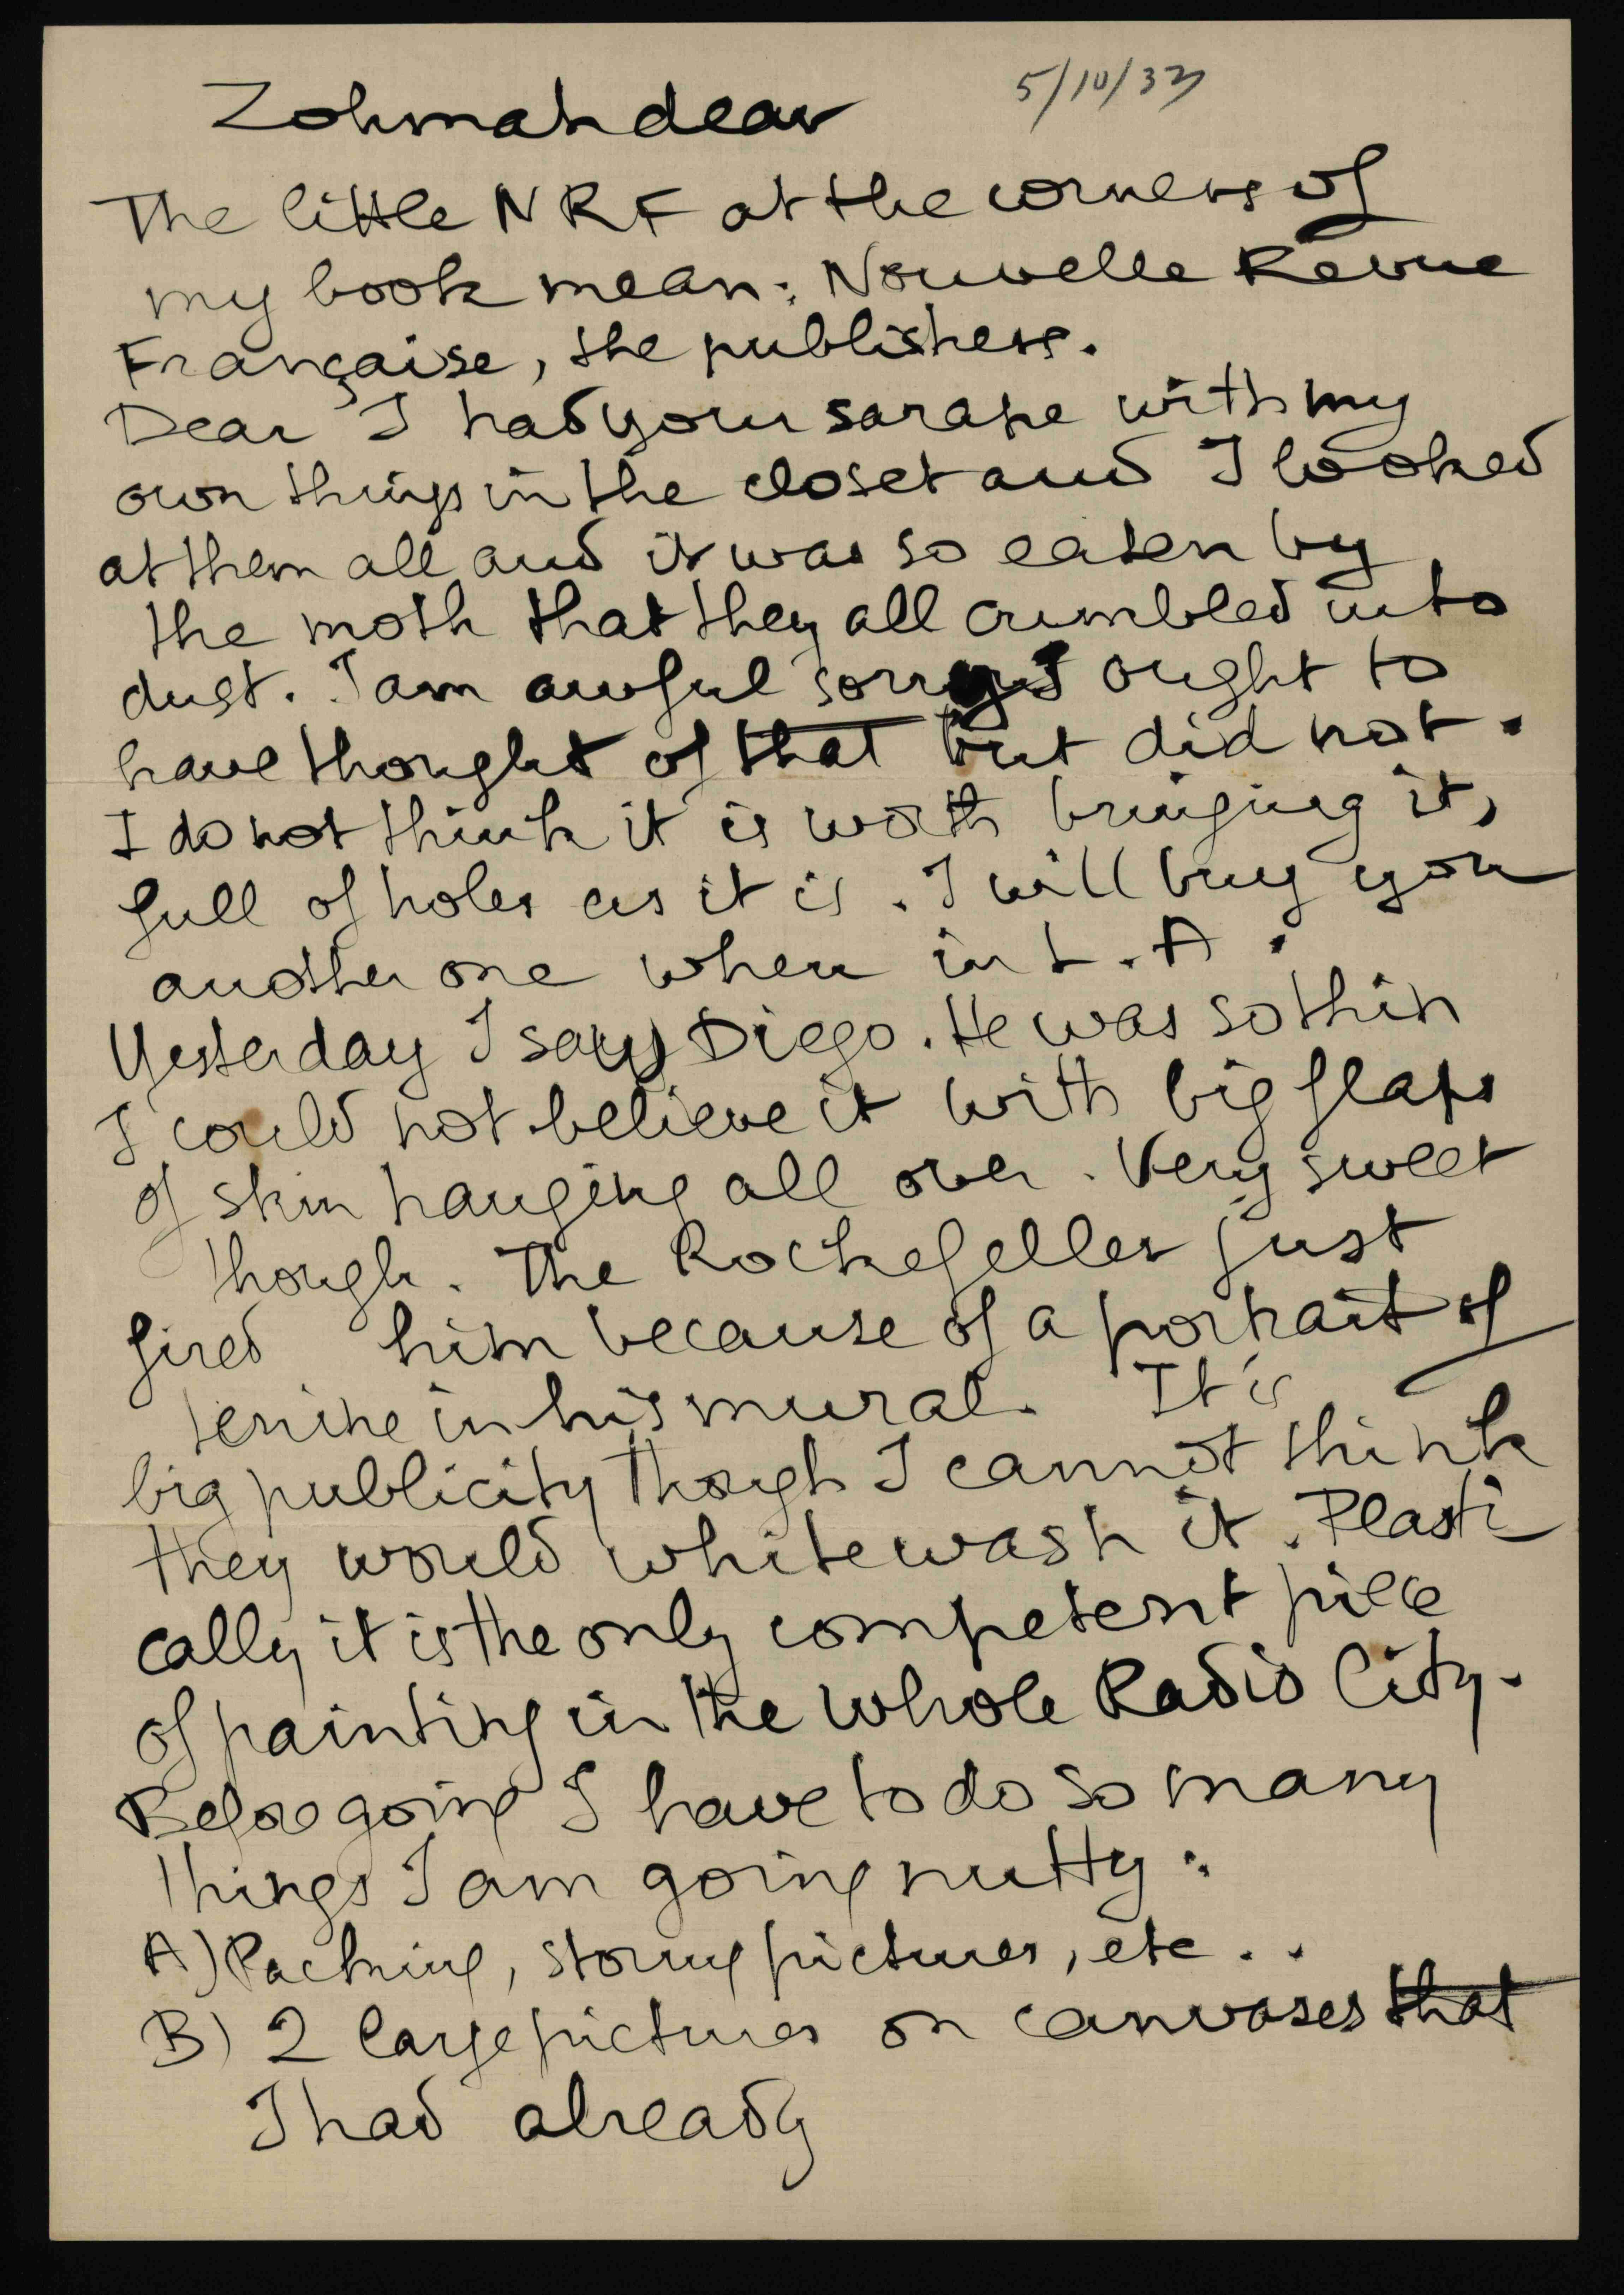 5/10/33
Zohmah dear
The little NRF at the corners of
my book mean: Nouvelle Revue
Française, the publishers.
Dear I had your sarape with my
own things in the closet and I looked
at them all and it was so eaten by
the moth that they all crumbled into
dust. I am awful sorry I ought to
have thought of that but did not.
I do not think it is worth bringing it,
full of holes as it is. I will buy you
another one when in L.A.
Yesterday I saw Diego. He was so thin
I could not believe it with big flaps
of skin hanging all over. Very sweet
though. The Rockefeller just
fired him because of a portrait of
Lenine in his mural. It is
big publicity though I cannot think
they would whitewash it. Plasti
cally it is the only competent piece
of painting in the whole Radio City.
Before going I have to do so many
things I am going nutty:
A) Packing, storing pictures, etc..
B) 2 large pictures on canvases that
I had already